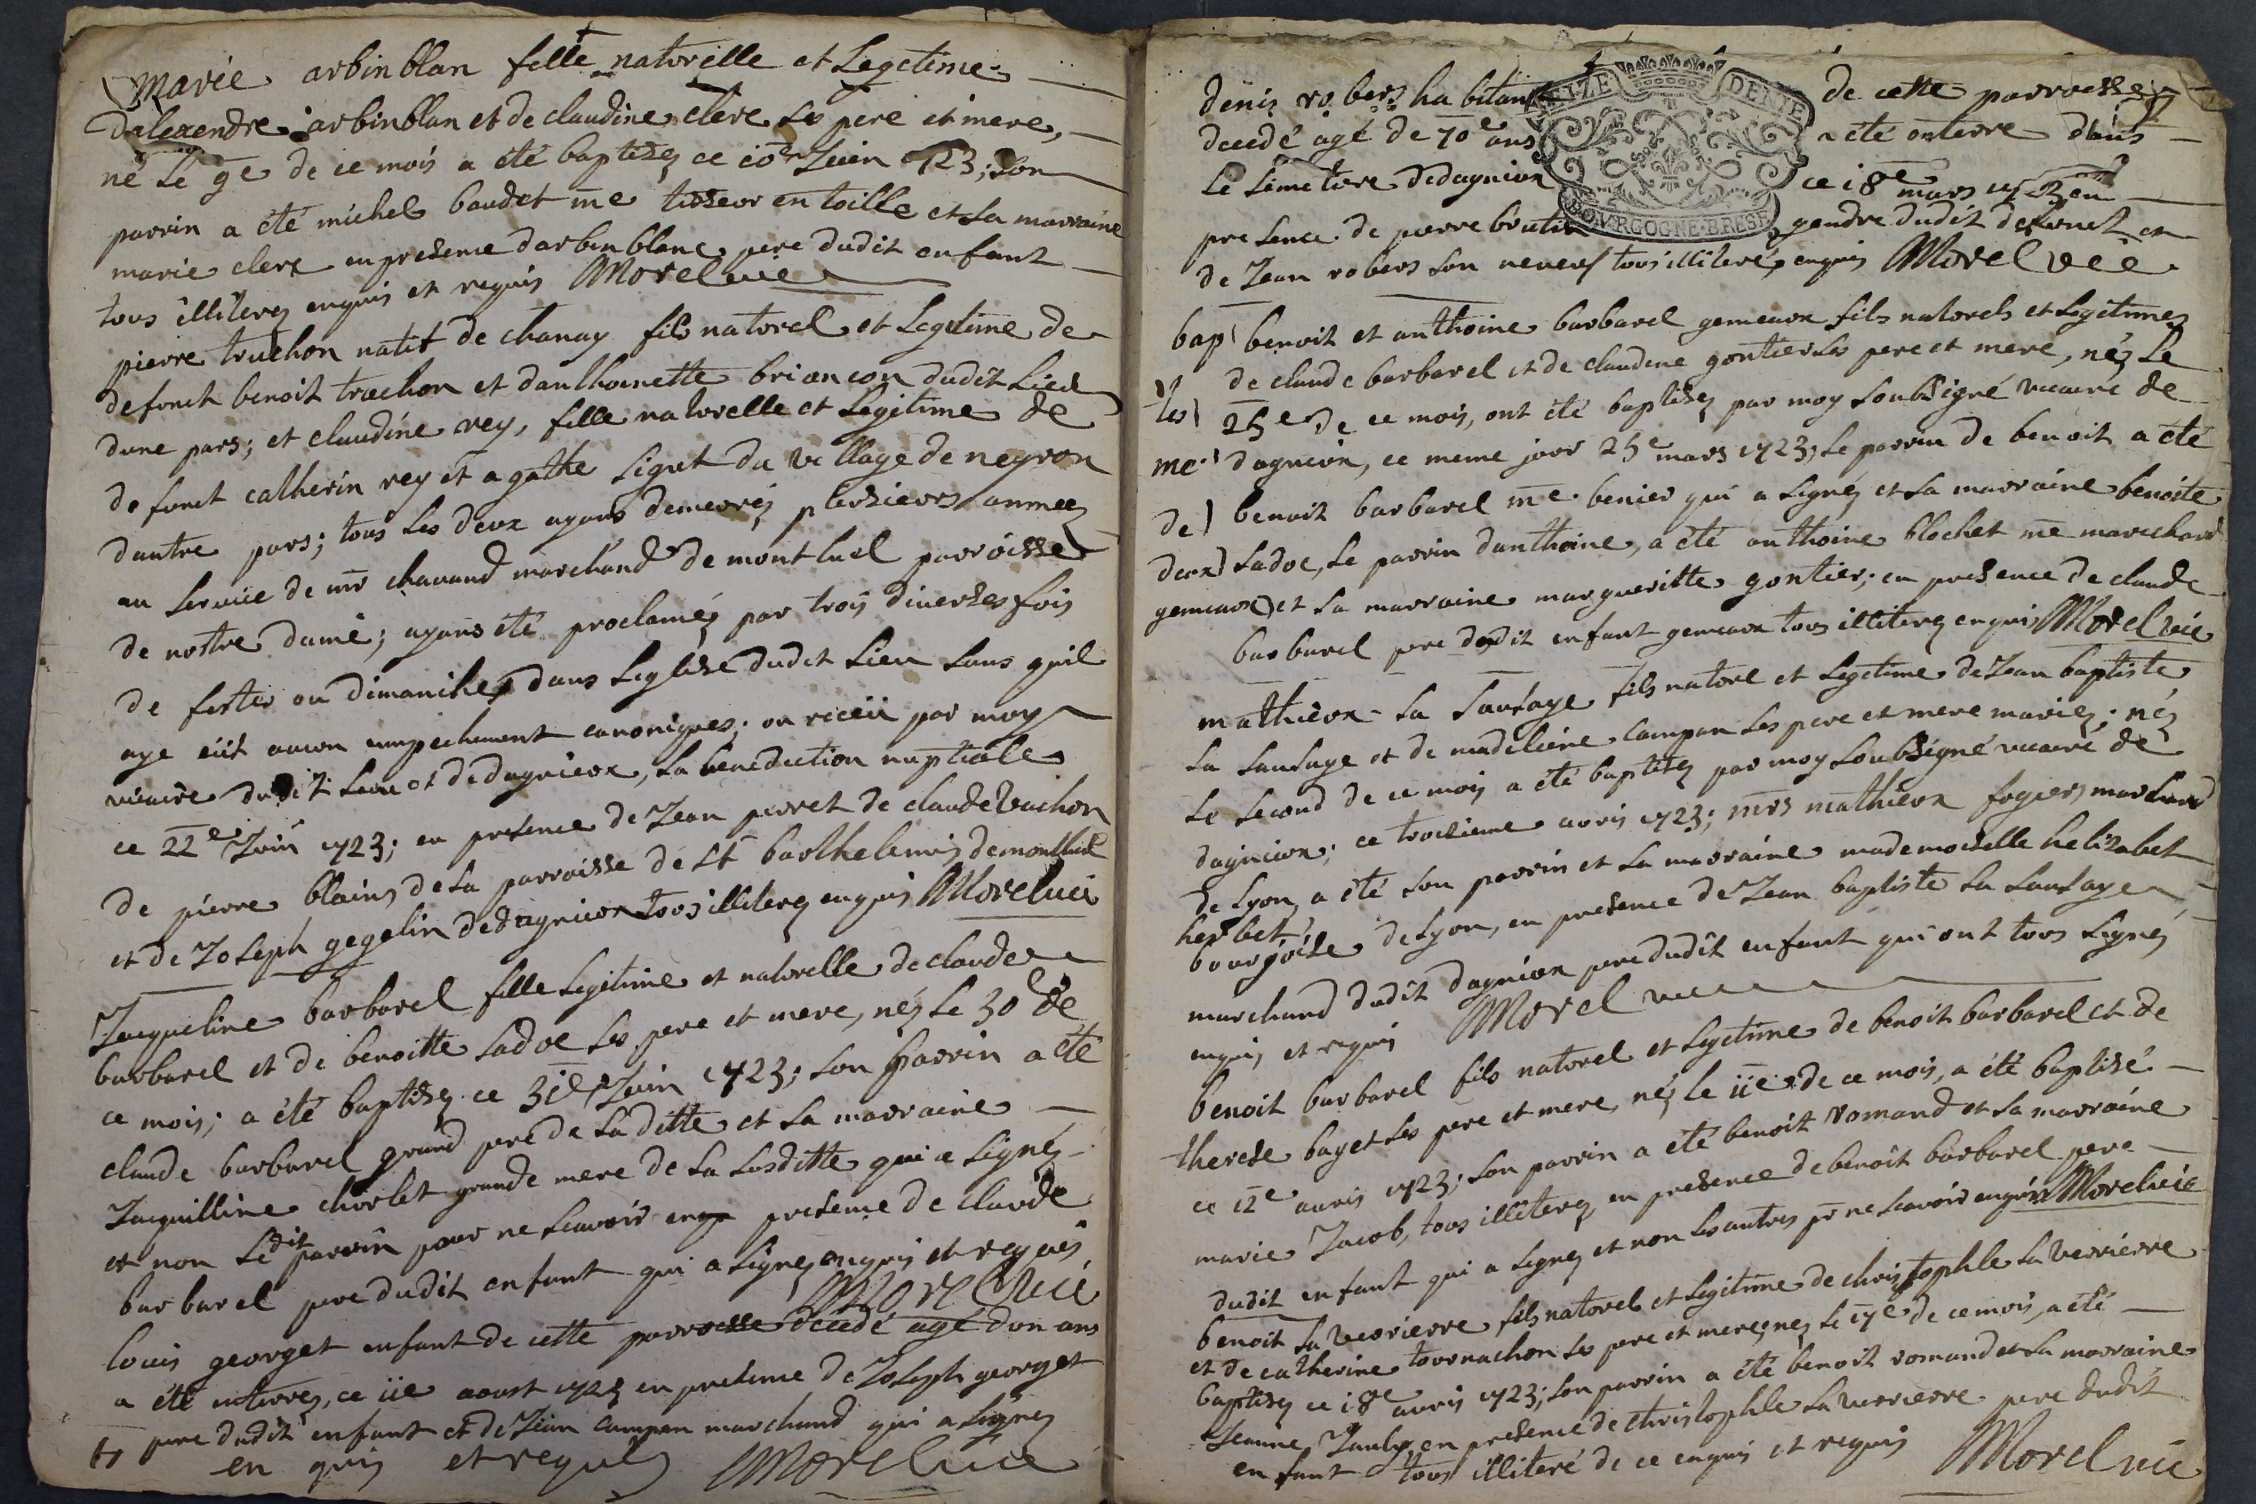 marie arbinblan fille naturelle et Legetime
Dalexendre arbinblan et de claudine clerc Ses pere et mere,
né Le 9e de ce mois a été baptisez ce 10e Juin 1723; Son
parrin a été michel baudet me tisseur en toille et La marraine
marie clerc en presence darbinblanc pere dudit enfant
tous illiterez enquis et requis Morel vic
pierre truchon natif de chanay fils naturel et Legitime de
defunct benoit truchon et danthoinette briancon dudit Lieu
dune pars; et claudine rey, fille naturelle et Legitime de
defunct catherin rey et agathe Signet du village de neyron
dautre pars; tous Les deux ayans demeurés plusieurs années
au Service de mr chavand marchand de montluel parroisse
de nostre dame; ayans été proclamés par trois diverses fois
de festes ou dimanches dans Leglise dudit Lieu Sans quil
aye eüt aucun empechement canoniques; on receu par moy
vicaire dudit Lieu et de dagnieux, La benediction nuptiale
ce 22e Juin 1723; en presence de Jean perret de claude vachon
de pierre blains de La parroisse de St barthelemis de montluel
et de Joseph gegelin de dagnieux tous illiterez enquis Morel vic
Jacqueline barbarel fille Legitime et naturelle de claude
barbarel et de benoitte Sadoe Ses pere et mere, néz Le 30e de
ce mois; a été baptisez ce 31e Juin 1723; Son parrin a été
claude barbarel grand pere de La ditte et La marraine
Jacquilline chorlet grande mere de La Susditte qui a Signéz
et non Le dit parrin pour ne Scavoir enq presence de claude
barbarel pere dudit enfant qui a Signez enquis et requis
Morel vic
Louis georget enfant de cette parroisse decedé agé dun ans
a été enterrez, ce 11e aoust 1723 en presence de Joseph georget
pere dudit enfant et de Jean campan marchand qui a Signez
en quis et requis Morel vic
GENERALITE
SEIZE DENIE
BOVRGOGNE-BRESSE
denis robers habitans de cette parroisse
decedé agé de 70e ans a été enterre dans
Le Simetiere de dagnieux ce 18e mars 1723 en
presence de pierre brutin gendre dudit defunct et
de Jean robers Son neveux tous illiterés enquis Morel vic
bap benoit et anthoine barbarel gemeaux fils naturels et Legitimes
de claude barbarel et de claudine gontier Ses pere et mere, néz Le
tes 25e de ce mois, ont été baptisez par moy Soubsigné vicaire de
me dagnieux, ce meme jour 25e mars 1723; Le parrin de benoit a été
de benoit barbarel me benier qui a Signez et La marraine benoite
deux Sadoe, Le parrin danthoine, a été anthoine blochet me marechand
gemeaux et La marraine margueritte gontier; en presence de claude
barbarel pere dudit enfant gemeaux tous illiterez enquis Morel vic
mathieux La Sausaye fils naturel et Legetime de Jean baptiste
La Sausaye et de madeliene campan Ses pere et mere mariez; néz
Le Second de ce mois a été baptisez par moy Soubsigné vicaire de
dagnieux; ce troisieme avris 1723; mrs mathieux fogiers marchand
de Lyon, a été Son parrin et La marraine mademoiselle helizabet
bourgoise de Lyon, en presence de Jean baptiste La Sausaye
marchand dudit dagnieux pere dudit enfant qui ont tous Signéz
enquis et requis Morel vic
benoit barbarel fils naturel et Legetime de benoit barbarel et de
therese bayet Ses pere et mere, néz le 11e de ce mois, a été baptisé
ce 12e avris 1723; Son parrin a été benoit romand et La marraine
marie Jacob, tous illiterez, en presence de benoit barbarel pere
dudit enfant qui a Signez et non Les autres pr ne Scavoir enquis Morel vic
benoit La verrierre fils naturel et Legitime de christophle La verrierre
et de catherine tournachon Ses pere et mere, néz Le 17e de ce mois, a été
baptisez ce 18e avris 1723; Son parrin a été benoit romand et La marraine
Jeanne Janly, en presence de christophle La verrierre pere dudit
enfant tous illiteré de ce enquis et requis Morel vic